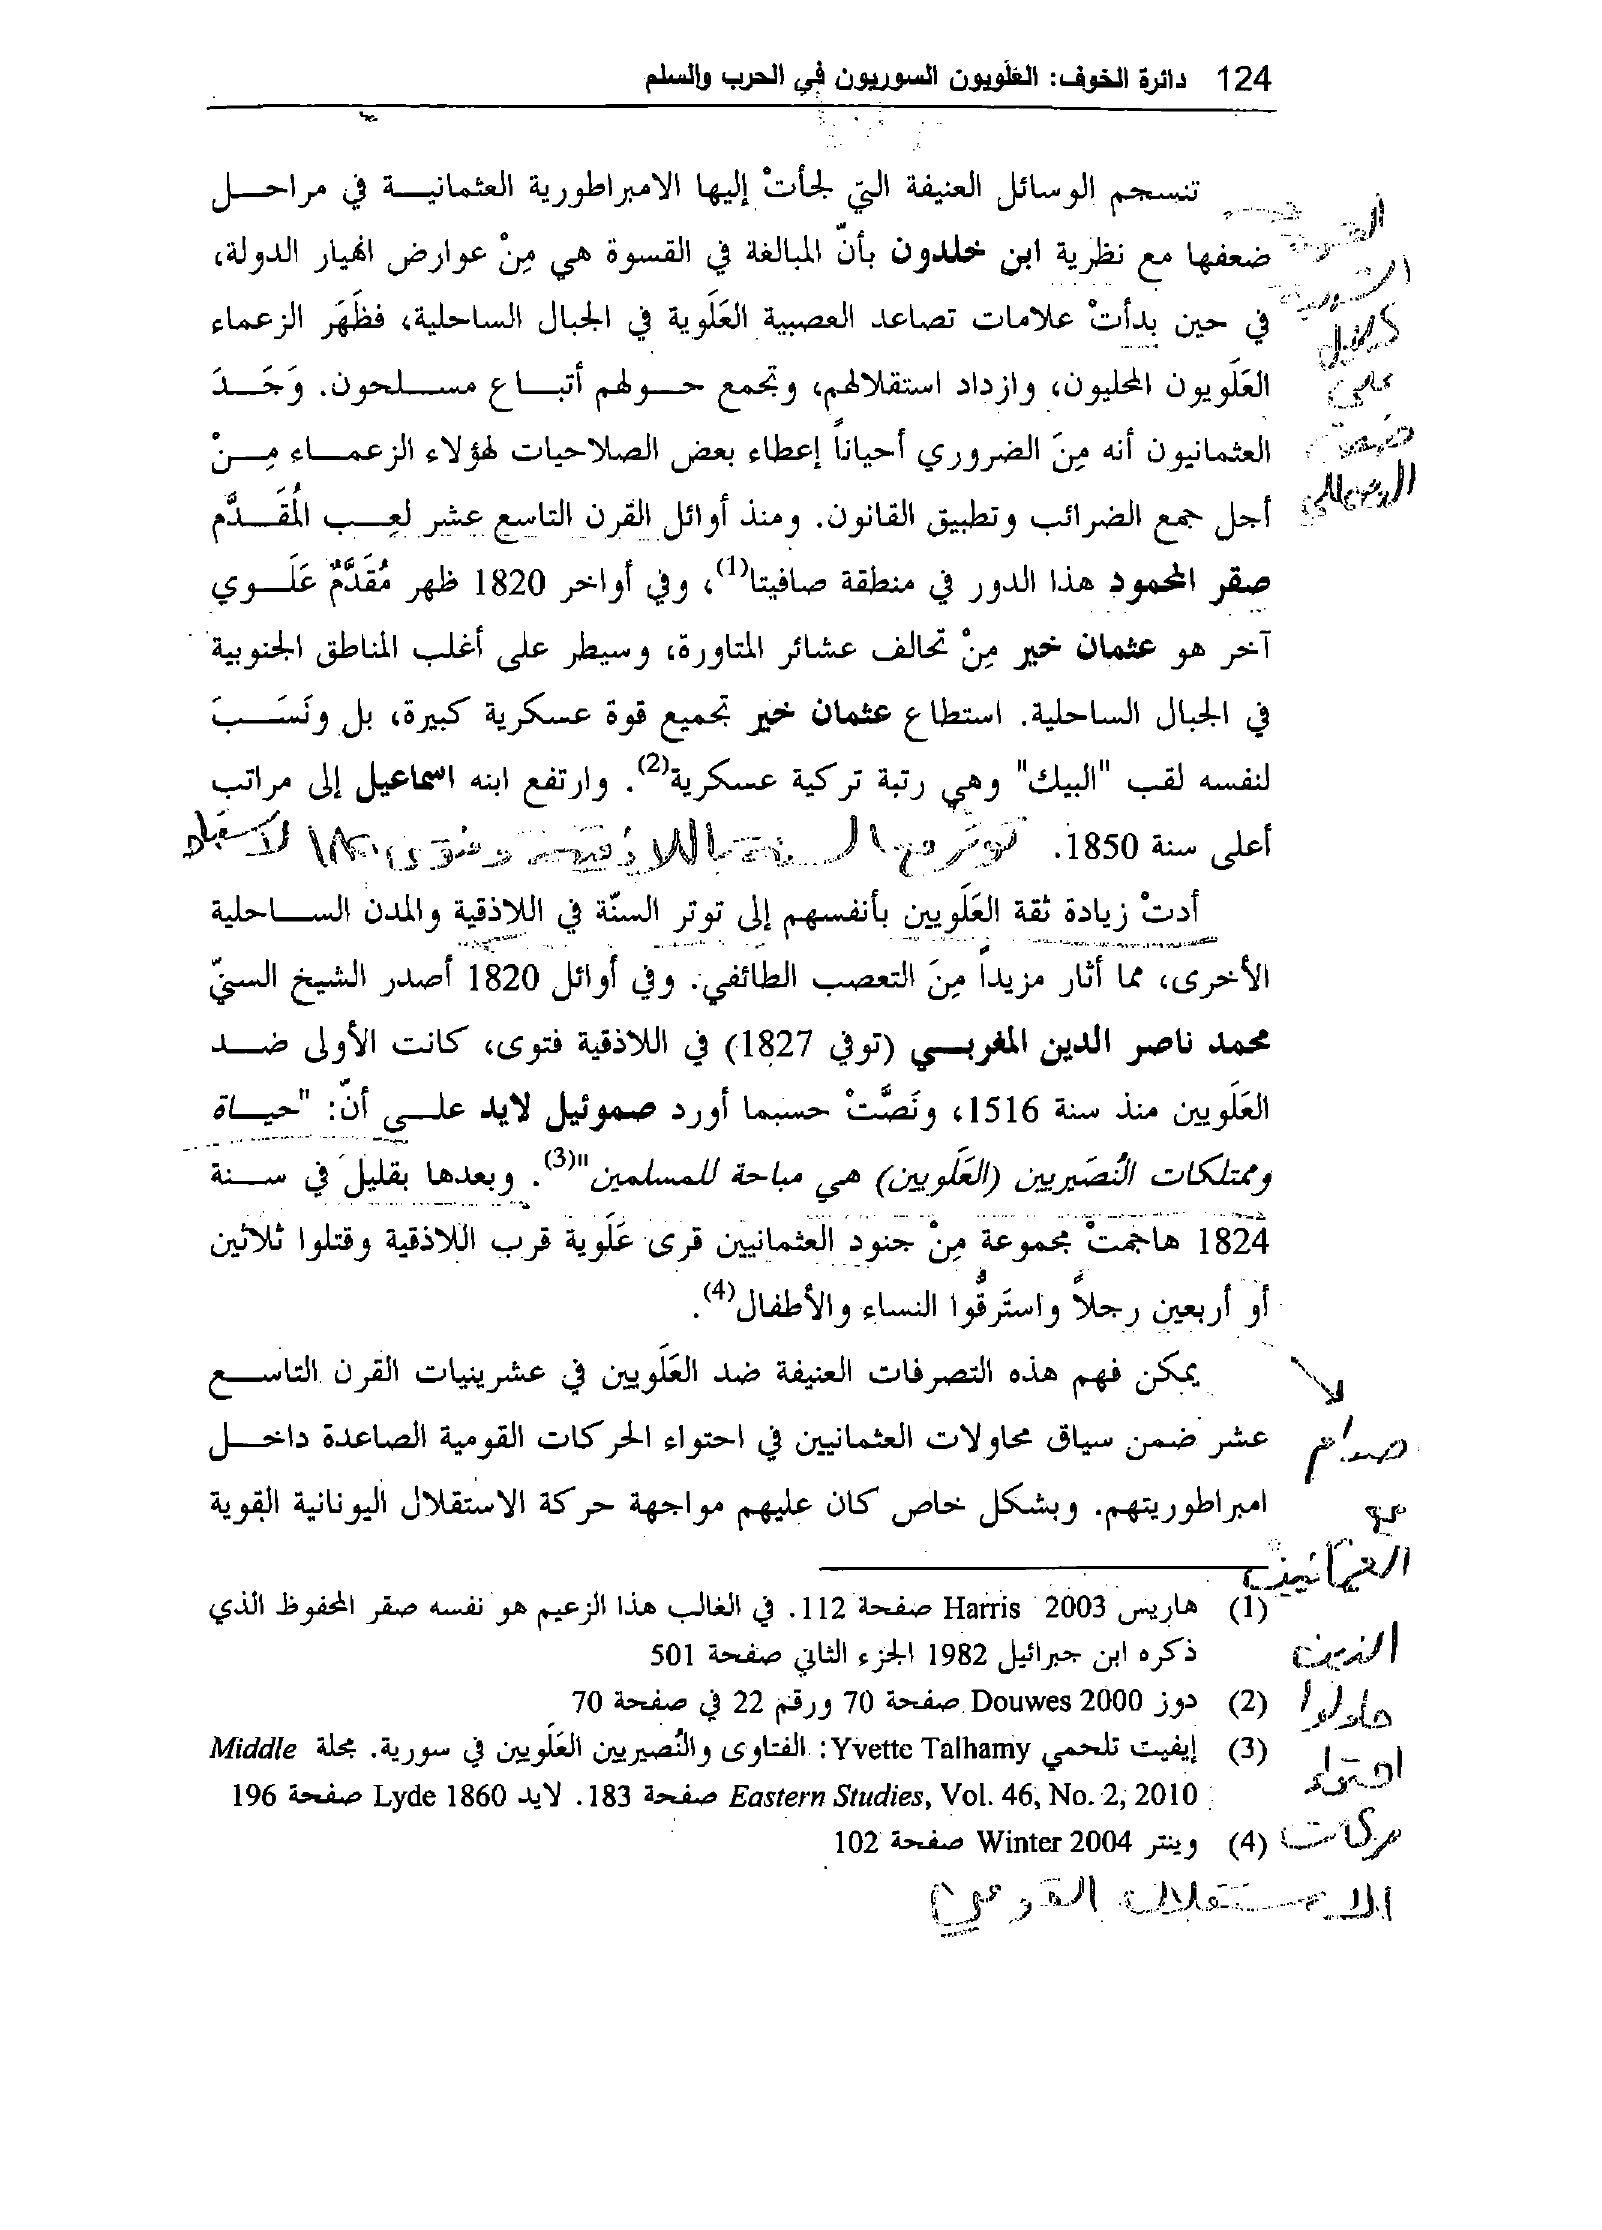 124 دائرة الخوف: العَلَويون السوريون في الحرب والسلم
تنسجم الوسائل العنيفة التي لجأتْ إليها الامبراطورية العثمانية في مراحل
ضعفها مع نظرية ابن خلدون بأنّ المبالغة في القسوة هي مِنْ عوارض انهيار الدولة،
في حين بدأتْ علامات تصاعد العصبية العَلَوية في الجبال الساحلية، فظَهَر الزعماء
العَلَويون المحليون، وازداد استقلالهم، وتجمع حولهم أتباع مسلحون. وَجَدَ
العثمانيون أنه مِنَ الضروري أحياناً إعطاء بعض الصلاحيات لهؤلاء الزعماء مِنْ
أجل جمع الضرائب وتطبيق القانون. ومنذ أوائل القرن التاسع عشر لعب المُقَدَّم
صقر المحمود هذا الدور في منطقة صافيتا(1)، وفي أواخر 1820 ظهر مُقَدَّمٌ عَلَوي
آخر هو عثمان خير مِنْ تحالف عشائر المتاورة، وسيطر على أغلب المناطق الجنوبية
في الجبال الساحلية. استطاع عثمان خير تجميع قوة عسكرية كبيرة، بل ونَسَبَ
لنفسه لقب "البيك" وهي رتبة تركية عسكرية(2). وارتفع ابنه اسماعيل إلى مراتب
أعلى سنة 1850. توتر السنة باللاذقية وفتوى
أدتْ زيادة ثقة العَلَويين بأنفسهم إلى توتر السنّة في اللاذقية والمدن الساحلية
الأخرى، مما أثار مزيداً مِنَ التعصب الطائفي. وفي أوائل 1820 أصدر الشيخ السنيّ
محمد ناصر الدين المغربي (توفي 1827) في اللاذقية فتوى، كانت الأولى ضد
العَلَويين منذ سنة 1516، ونَصَّتْ حسبما أورد صموئيل لايد على أنّ: "حياة
وممتلكات النُصَيريين (العَلَويين) هي مباحة للمسلمين"(3). وبعدها بقليل في سنة
1824 هاجمتْ مجموعة مِنْ جنود العثمانيين قرى عَلَوية قرب اللاذقية وقتلوا ثلاثين
أو أربعين رجلاً واستَرقُّوا النساء والأطفال(4).
يمكن فهم هذه التصرفات العنيفة ضد العَلَويين في عشرينيات القرن التاسع
عشر ضمن سياق محاولات العثمانيين في احتواء الحركات القومية الصاعدة داخل
امبراطوريتهم. وبشكل خاص كان عليهم مواجهة حركة الاستقلال اليونانية القوية
(1) هاريس Harris 2003 صفحة 112. في الغالب هذا الزعيم هو نفسه صقر المحفوظ الذي
ذكره ابن جبرائيل 1982 الجزء الثاني صفحة 501
(2) دوز Douwes 2000 صفحة 70 ورقم 22 في صفحة 70
(3) إيفيت تلحمي Yvette Talhamy: الفتاوى والنُصيريين العَلَويين في سورية. مجلة Middle
Eastern Studies, Vol. 46, No. 2, 2010 صفحة 183. لايد Lyde 1860 صفحة 196
(4) وينتر Winter 2004 صفحة 102
كدليل
على
ضعف
صدام
مع
العثمانيين
الذين
حاولوا
احتواء
حركات
الاستقلال القومي